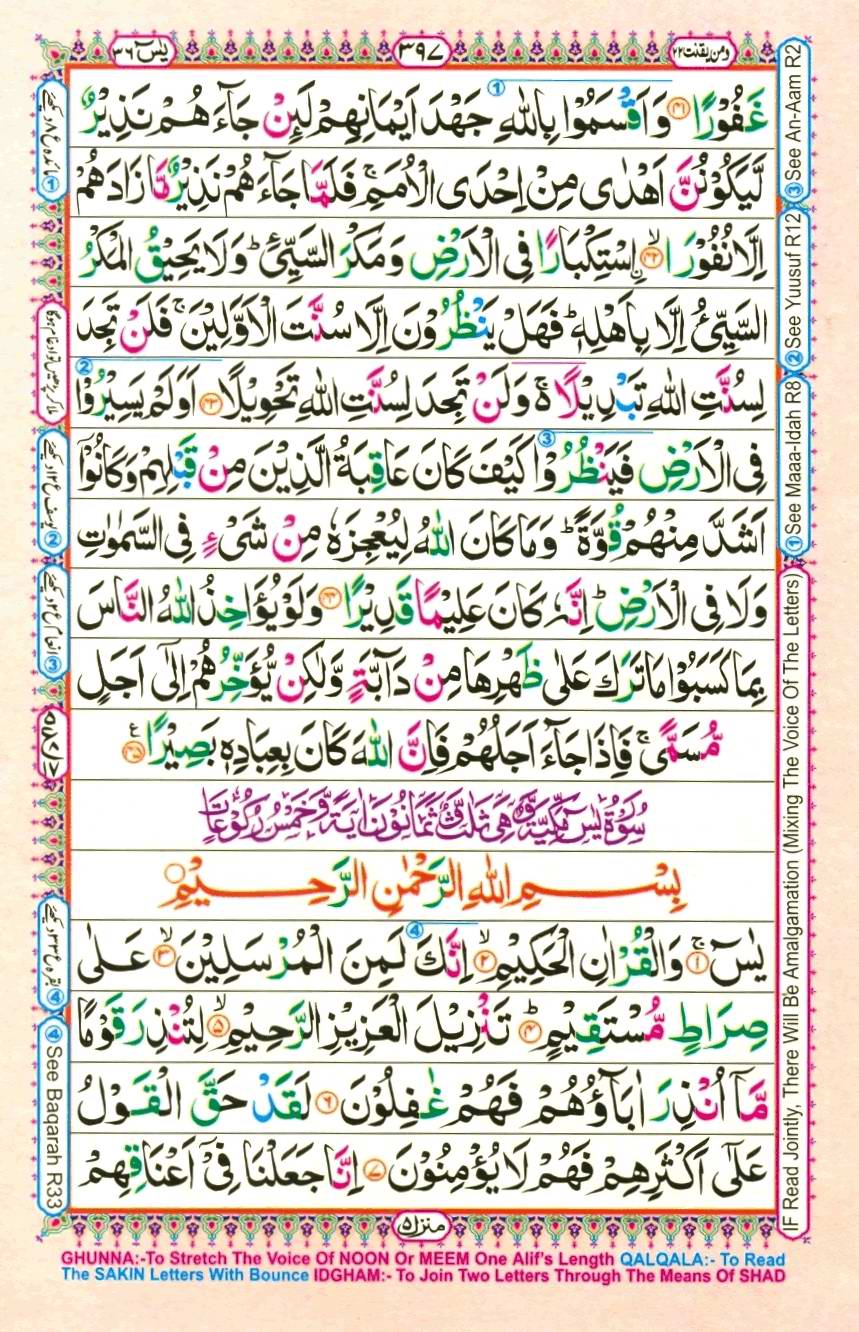 ومن یقنت ۲۲
۳۹۷
یٰسٓ ۳۶
غَفُوْرًا ﴿۴۱﴾ وَاَقْسَمُوْا بِاللّٰهِ جَهْدَ اَیْمَانِهِمْ لَئِنْ جَآءَهُمْ نَذِیْرٌ
لَّیَكُوْنُنَّ اَهْدٰی مِنْ اِحْدَی الْاُمَمِ ۚ فَلَمَّا جَآءَهُمْ نَذِیْرٌ مَّا زَادَهُمْ
اِلَّا نُفُوْرًا ﴿۴۲﴾ اِسْتِكْبَارًا فِی الْاَرْضِ وَمَكْرَ السَّیِّئِ ؕ وَلَا یَحِیْقُ الْمَكْرُ
السَّیِّئُ اِلَّا بِاَهْلِهٖ ؕ فَهَلْ یَنْظُرُوْنَ اِلَّا سُنَّتَ الْاَوَّلِیْنَ ۚ فَلَنْ تَجِدَ
لِسُنَّتِ اللّٰهِ تَبْدِیْلًا ۚ۬ وَلَنْ تَجِدَ لِسُنَّتِ اللّٰهِ تَحْوِیْلًا ﴿۴۳﴾ اَوَلَمْ یَسِیْرُوْا
فِی الْاَرْضِ فَیَنْظُرُوْا كَیْفَ كَانَ عَاقِبَةُ الَّذِیْنَ مِنْ قَبْلِهِمْ وَكَانُوْۤا
اَشَدَّ مِنْهُمْ قُوَّةً ؕ وَمَا كَانَ اللّٰهُ لِیُعْجِزَهٗ مِنْ شَیْءٍ فِی السَّمٰوٰتِ
وَلَا فِی الْاَرْضِ ؕ اِنَّهٗ كَانَ عَلِیْمًا قَدِیْرًا ﴿۴۴﴾ وَلَوْ یُؤَاخِذُ اللّٰهُ النَّاسَ
بِمَا كَسَبُوْا مَا تَرَكَ عَلٰی ظَهْرِهَا مِنْ دَآبَّةٍ وَّلٰكِنْ یُّؤَخِّرُهُمْ اِلٰۤی اَجَلٍ
مُّسَمًّی ۚ فَاِذَا جَآءَ اَجَلُهُمْ فَاِنَّ اللّٰهَ كَانَ بِعِبَادِهٖ بَصِیْرًا ﴿۴۵﴾ ع
سُوْرَةُ یٰسٓ مَكِّیَّةٌ وَّهِیَ ثَلٰثٌ وَّثَمَانُوْنَ اٰیَةً وَّخَمْسُ رُكُوْعَاتٍ
بِسْمِ اللّٰهِ الرَّحْمٰنِ الرَّحِیْمِ
یٰسٓ ۚ﴿۱﴾ وَالْقُرْاٰنِ الْحَكِیْمِ ۙ﴿۲﴾ اِنَّكَ لَمِنَ الْمُرْسَلِیْنَ ۙ﴿۳﴾ عَلٰی
صِرَاطٍ مُّسْتَقِیْمٍ ؕ﴿۴﴾ تَنْزِیْلَ الْعَزِیْزِ الرَّحِیْمِ ۙ﴿۵﴾ لِتُنْذِرَ قَوْمًا
مَّاۤ اُنْذِرَ اٰبَآؤُهُمْ فَهُمْ غٰفِلُوْنَ ﴿۶﴾ لَقَدْ حَقَّ الْقَوْلُ
عَلٰۤی اَكْثَرِهِمْ فَهُمْ لَا یُؤْمِنُوْنَ ﴿۷﴾ اِنَّا جَعَلْنَا فِیْۤ اَعْنَاقِهِمْ
منزل ۵
③ See An-Aam R2
② See Yuusuf R12
① See Maaa-Idah R8
IF Read Jointly, There Will Be Amalgamation (Mixing The Voice Of The Letters)
① مائدہ ع ۸ دیکھئے
ملا کر پڑھیں تو ادغام ہوگا
② یوسف ع ۱۲ دیکھئے
③ انعام ع ۲ دیکھئے
④ بقرہ ع ۳۳ دیکھئے
④ See Baqarah R33
GHUNNA:-To Stretch The Voice Of NOON Or MEEM One Alif's Length QALQALA:- To Read
The SAKIN Letters With Bounce IDGHAM:- To Join Two Letters Through The Means Of SHAD